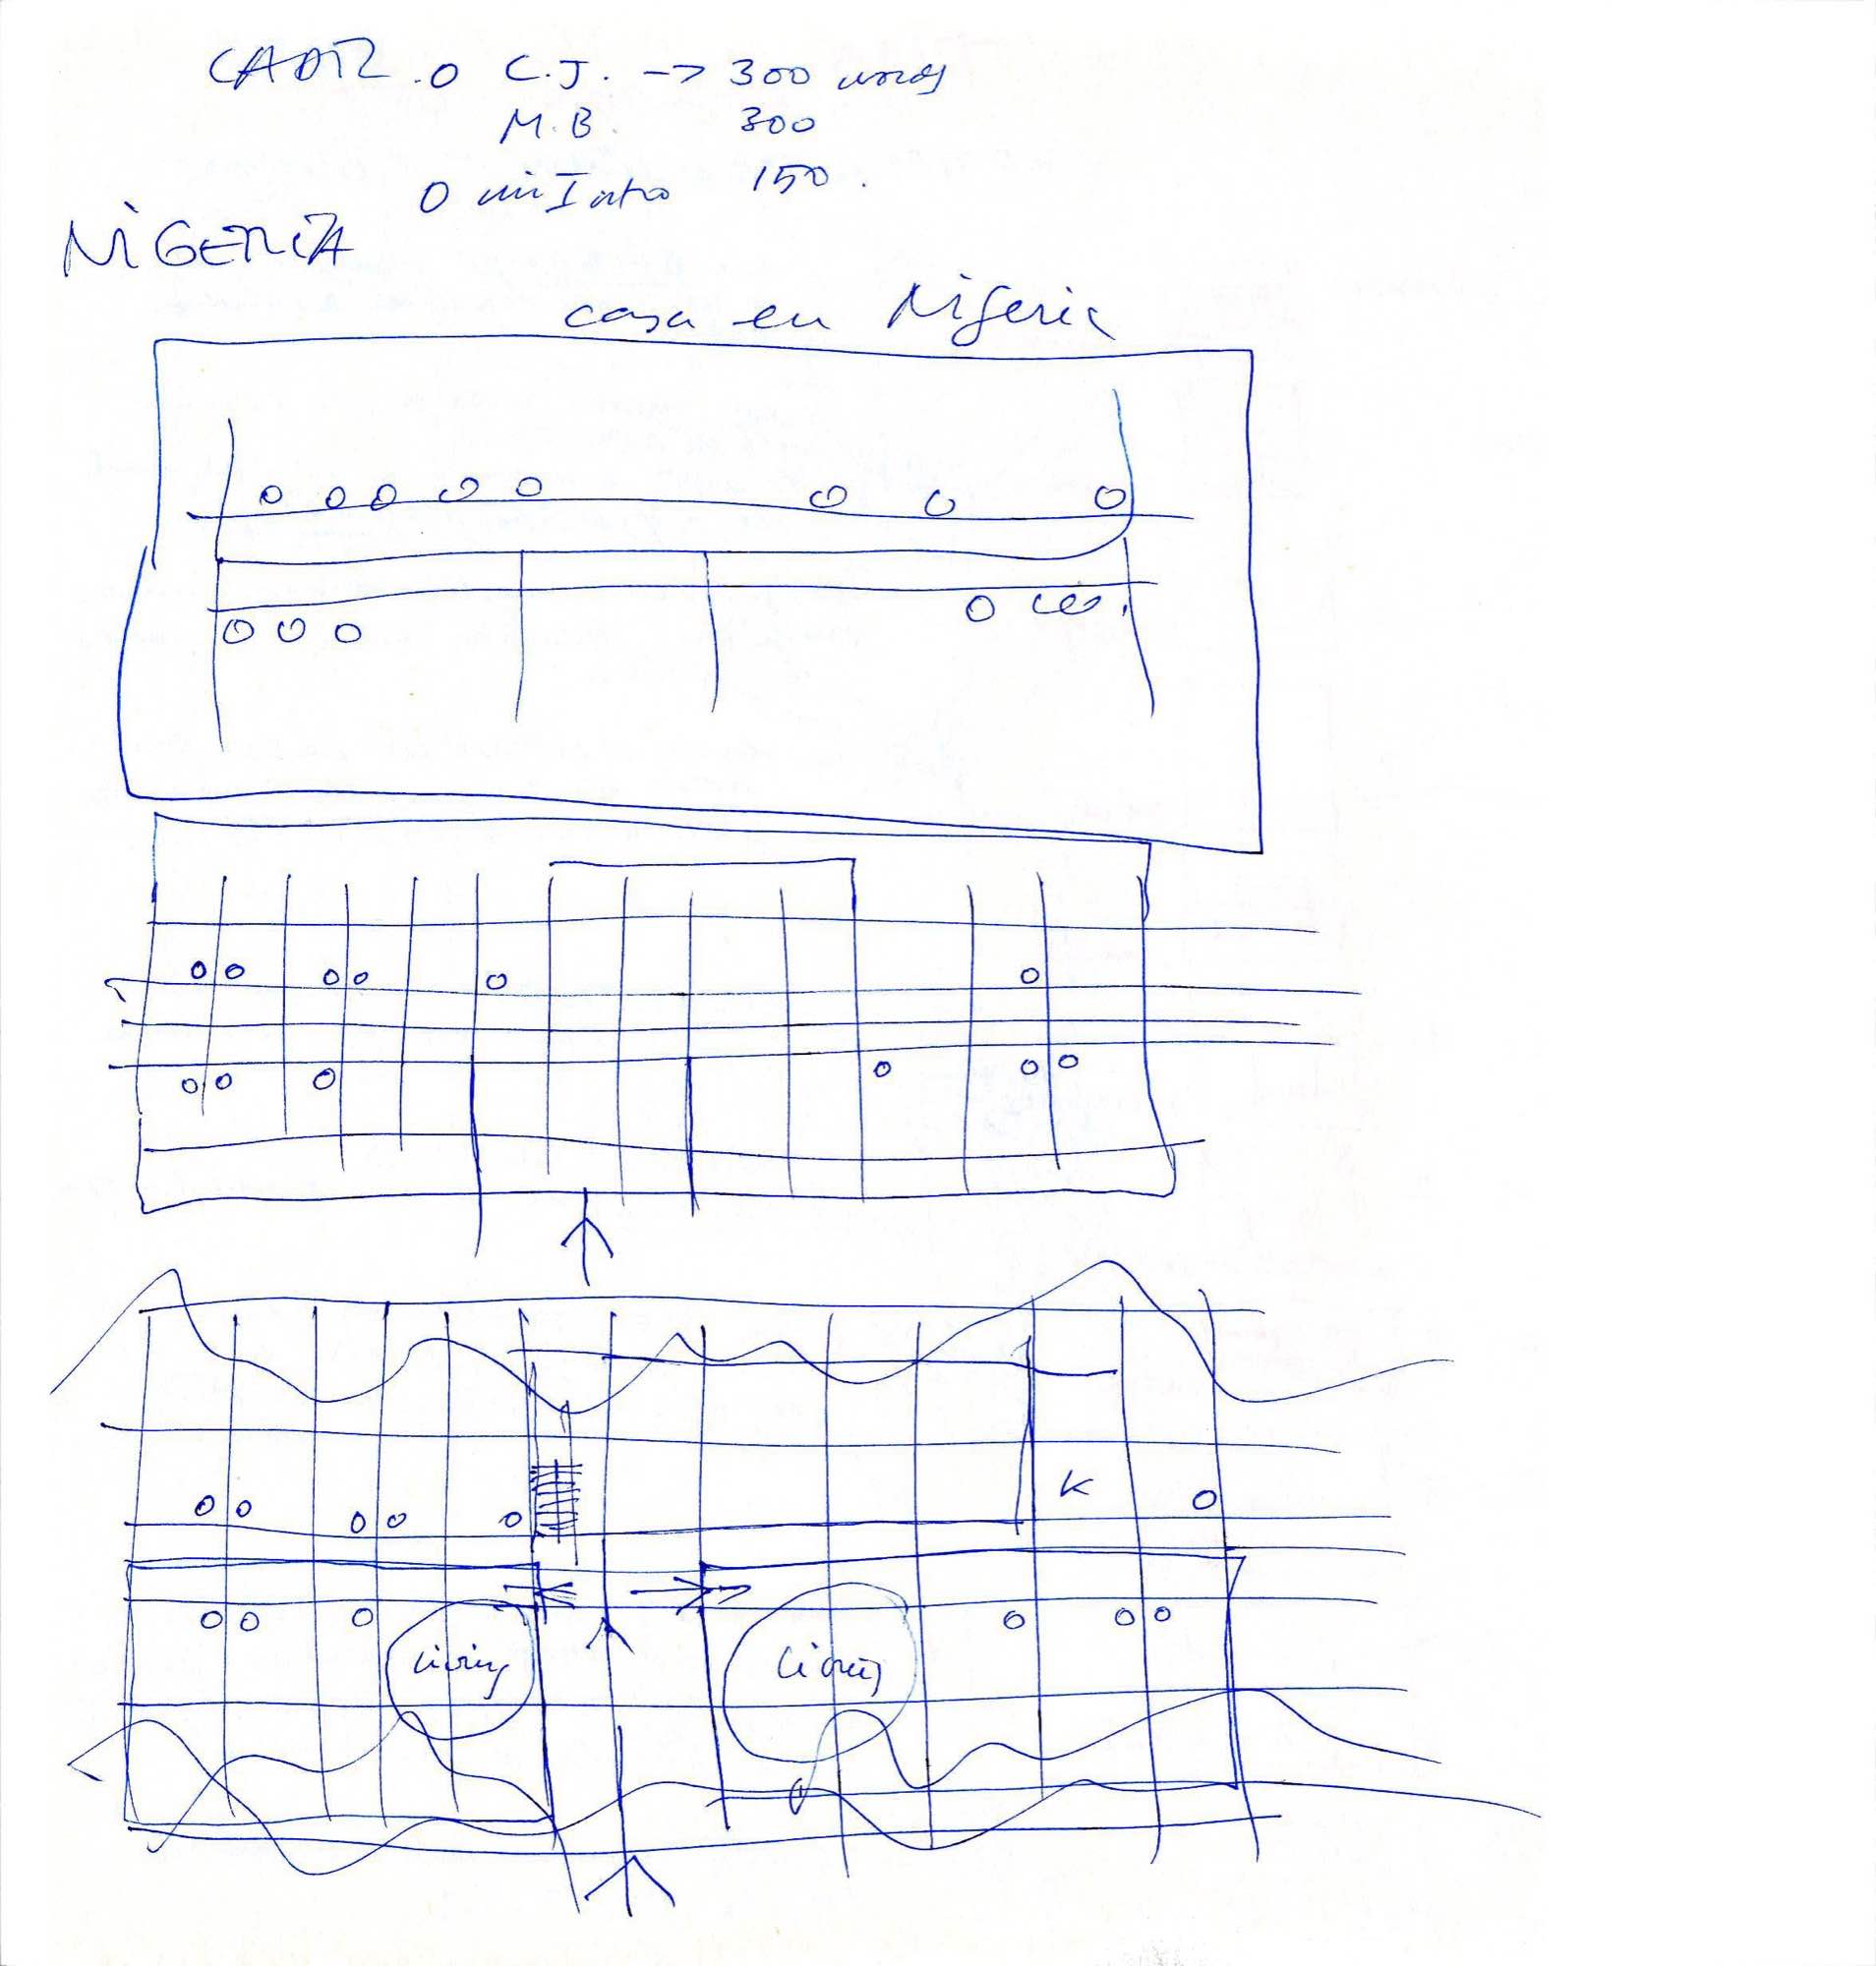 CADIZ . o C.J. -> 300 words
M.B. 300
O mi Intro 150.
NiGERIA
casa en Nigeria
K
living
living